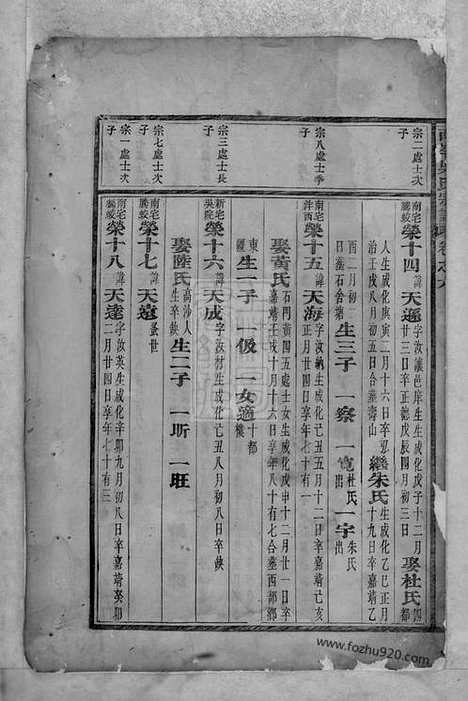 宗二處士次
子
南宅
騰蛟
榮十四
諱
天遜
字汝謙邑庠生生成化戊子十二月
廿三日卒正德戊辰四月初三日
娶杜氏
四
都
人生成化庚寅二月十六日卒
治壬戌八月初五日合墓壽山
繼朱氏
生成化乙巳正月
十九日卒嘉靖乙
酉二月初二
日墓石合
生三子
一察
一寬
杜氏
出
一宇
朱氏
出
宗八處士季
子
南宅
榮十五
諱
天海
字汝
生成化己丑五月十二日卒嘉靖己亥
正月廿四日享年七十一
娶黃氏
石門黃四五處士女生成化戊申十二月廿一日卒
嘉靖壬戌十月十六日享年八十有七合墓西部鄉
東
生一子
一伋
一女適
十都
樓
宗三處士長
子
新宅
吳院
榮十六
諱
天成
字汝材生成化己丑八月初八日卒缺
娶陸氏
高沙人
生卒缺
生二子
一昕
一旺
宗七處士次
子
南宅
騰蛟
榮十七
諱
天遠
蚤世
宗一處士次
子
南宅
騰蛟
榮十八
諱
天達
字汝英生成化辛卯九月初八日卒嘉靖癸卯
二月廿四日享年七十有三
www.fozhu920.com